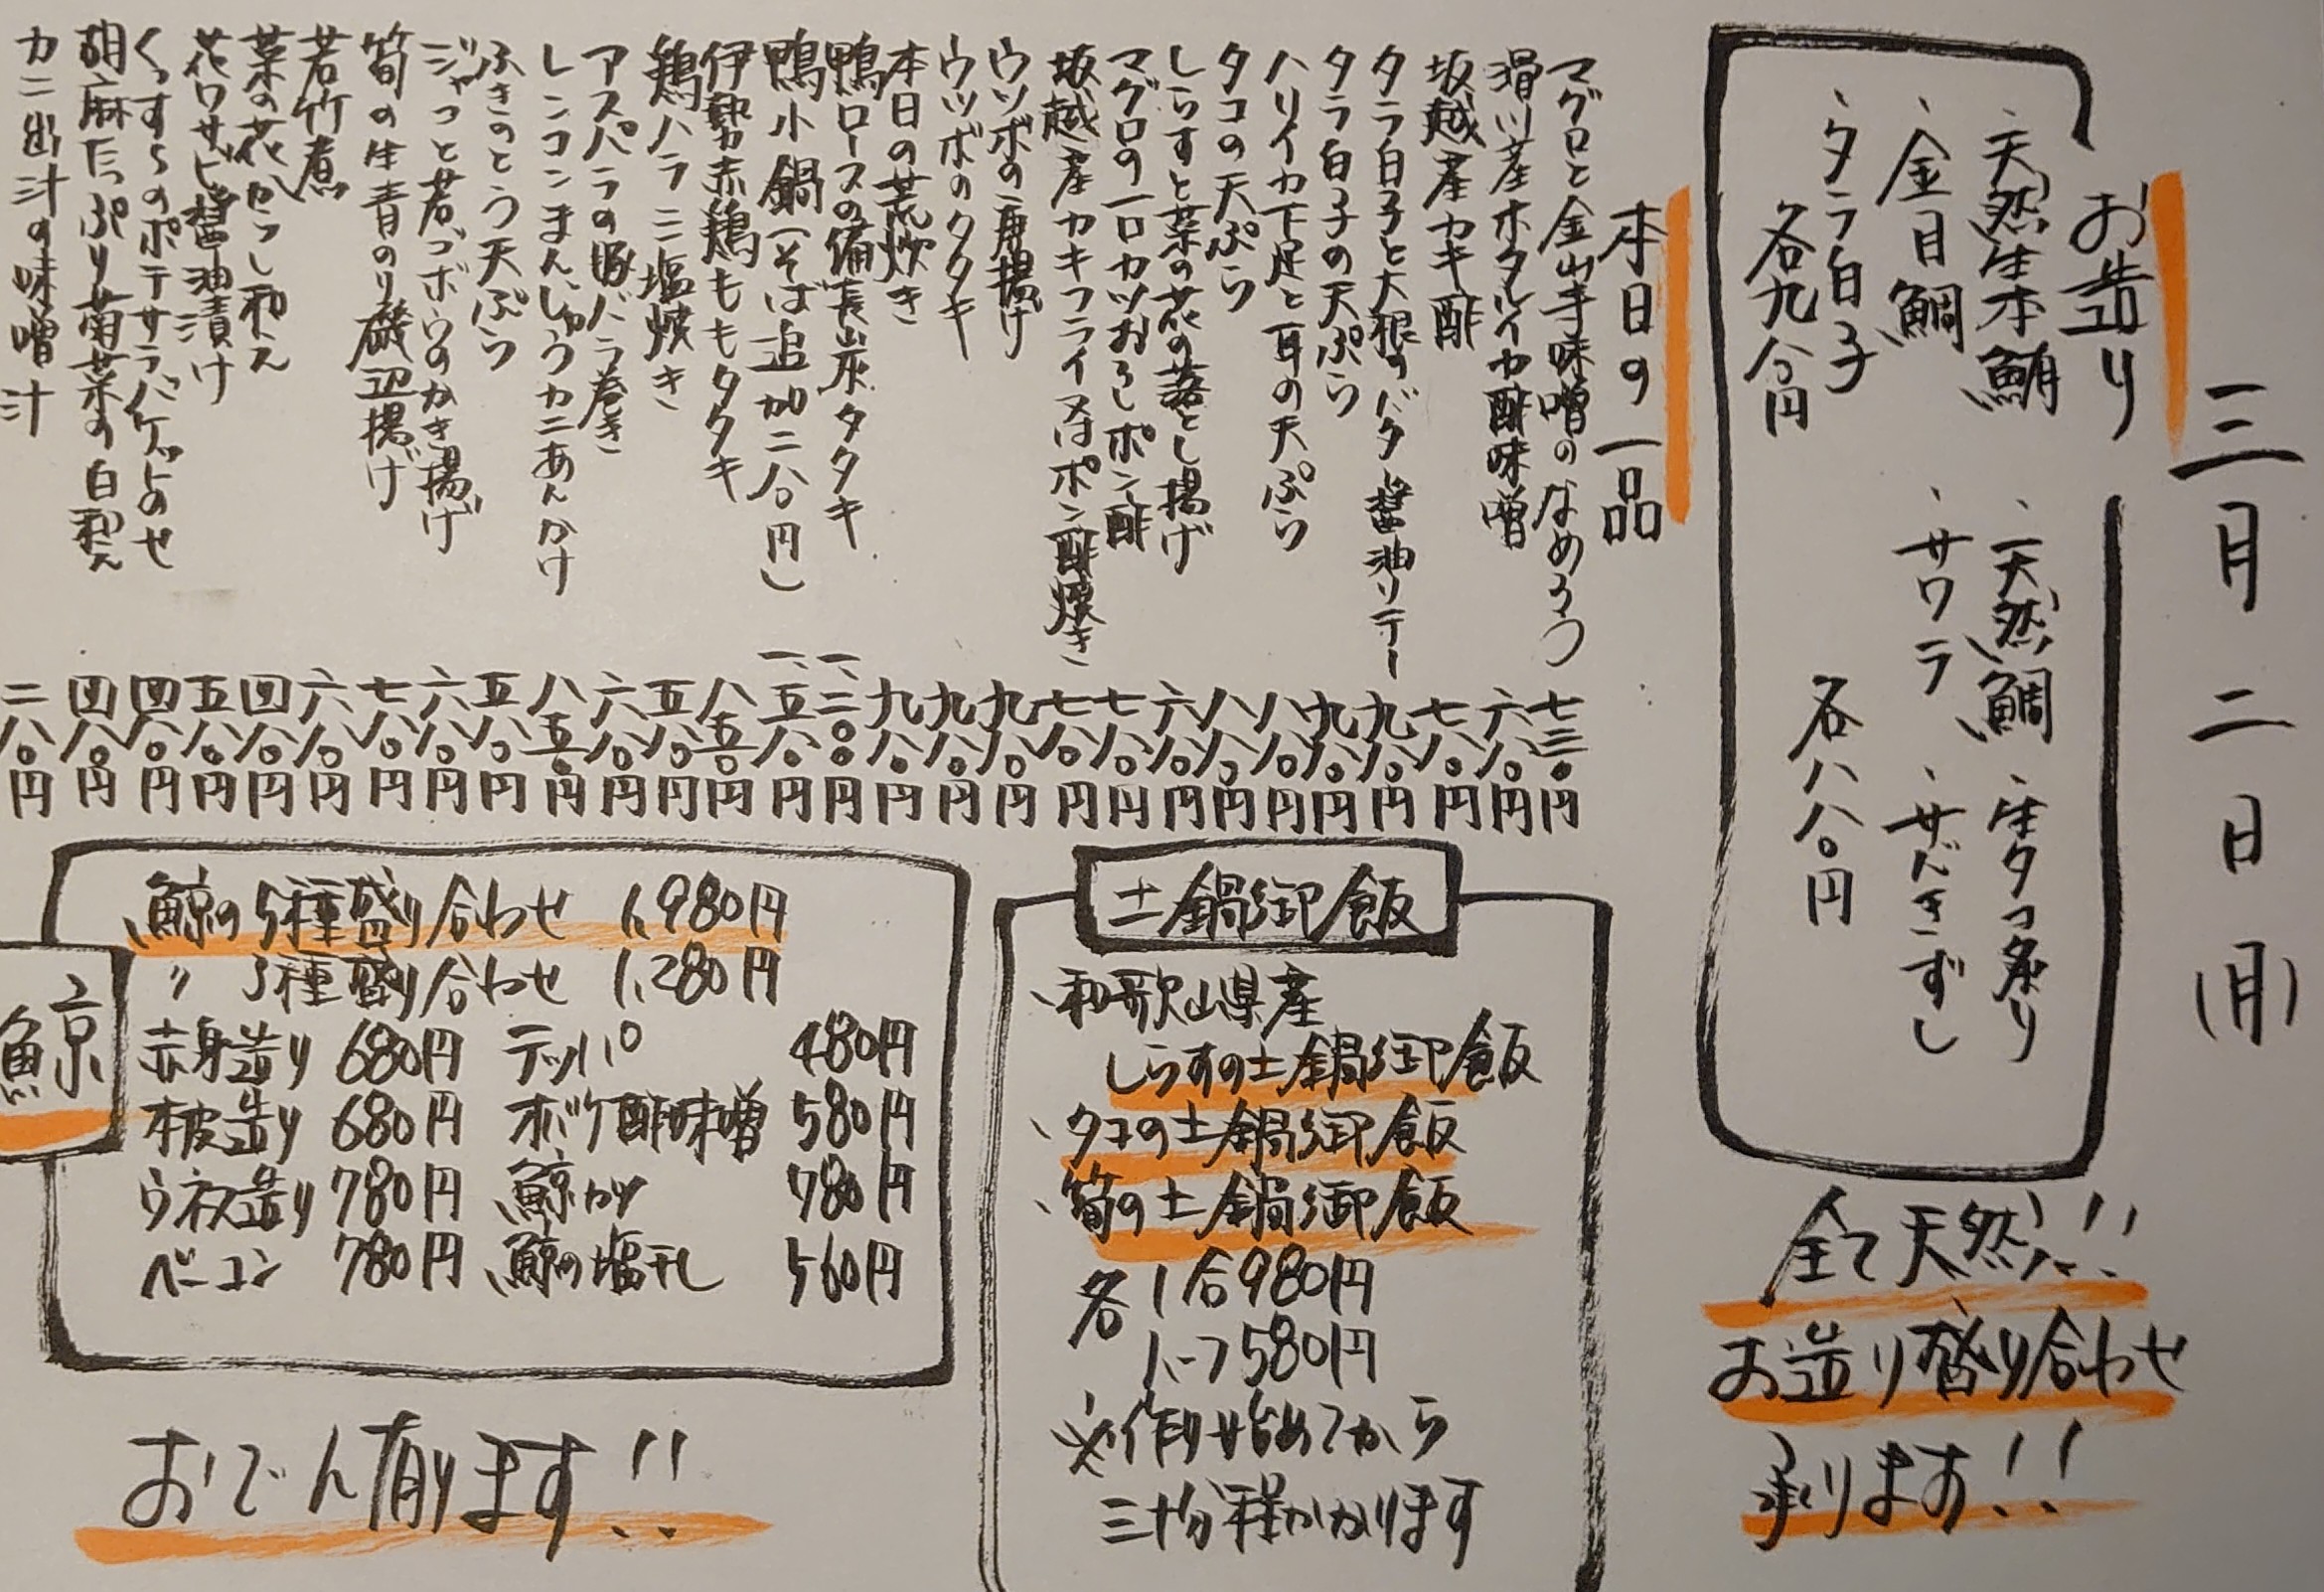 三月二日(月)
お造り
、天然生本鮪
、天然鯛
、生タコ炙り
、金目鯛
、サワラ
、サンキずし
、タラ白子
各九八〇円
各八八〇円
全て天然!!
お造り盛り合わせ
承ります!!
本日の一品
マグロと金山寺味噌のなめろう 七三〇円
滑川産ホタルイカ酢味噌 六八〇円
坂越産カキ酢 七八〇円
タラ白子と大根のバター醤油ソテー 九八〇円
タラ白子の天ぷら 九八〇円
ハリイカ下足と耳の天ぷら 八八〇円
タコの天ぷら 八八〇円
しらすと菜の花の落とし揚げ 六八〇円
マグロの一口カツおろしポン酢 七八〇円
坂越産カキフライ又はポン酢焼き 七八〇円
ウツボの唐揚げ 九八〇円
ウツボのタタキ 九八〇円
本日の荒炊き 九八〇円
鴨ロースの備長炭タタキ 一、二〇〇円
鴨小鍋(そば追加二八〇円) 一、五八〇円
伊勢赤鶏ももタタキ 八五〇円
鶏ハラミ塩焼き 五八〇円
アスパラの豚バラ巻き 六八〇円
レンコンまんじゅうカニあんかけ 八五〇円
ふきのとう天ぷら 五八〇円
ジャコと若ゴボウのかき揚げ 六八〇円
筍の生青のり磯辺揚げ 七八〇円
若竹煮 六八〇円
菜の花からし和え 四八〇円
花ワサビ醤油漬け 五八〇円
くずらのポテサラバゲットのせ 四八〇円
胡麻たっぷり菊菜の白和え 四八〇円
カニ出汁の味噌汁 二八〇円
土鍋御飯
、和歌山県産
しらすの土鍋御飯
、タコの土鍋御飯
、筍の土鍋御飯
各 1合980円
ハーフ580円
※作り始めてから
三十分程かかります
鯨
、鯨の5種盛り合わせ 1,980円
〃 3種盛り合わせ 1,280円
赤身造り 680円 テッパ 480円
本皮造り 680円 オバケ酢味噌 580円
ウネス造り 780円 鯨カツ 780円
ベーコン 780円 鯨の塩干し 560円
おでん有ります!!